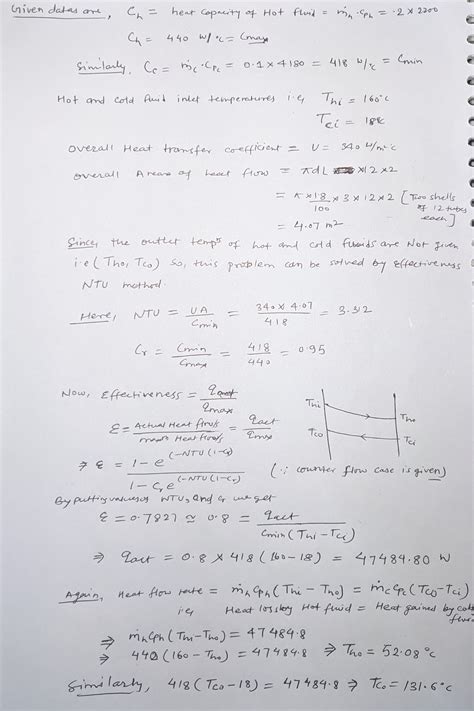 Given datas are, Ch = heat capacity of Hot fluid = ṁh · cph = ·2 × 2200
Ch = 440 W/°c = Cmax
Similarly, Cc = ṁc · CPc = 0.1 × 4180 = 418 W/°c = Cmin
Hot and cold fluid inlet temperatures i.e, Thi = 160°c
Tci = 18°c
Overall Heat transfer coefficient = U = 340 W/m²°c
Overall Area of heat flow = πdL ×12×2
= π × 1.8/100 × 3 × 12 × 2 [Two shells of 12 tubes each]
= 4.07 m²
Since, the outlet temps of hot and cold fluids are Not given
i.e (Tho, Tco) So, this problem can be solved by Effectiveness
NTU method.
Here, NTU = UA/Cmin = 340×4.07/418 = 3.312
Cr = Cmin/Cmax = 418/440 = 0.95
Now, Effectiveness = qact/qmax
ε = Actual Heat flow/s / max Heat flow/s = qact/qmax
Thi Tho
Tco Tci
⇒ ε = 1 - e^(-NTU(1-Cr)) / 1 - Cr e^(-NTU(1-Cr)) (∵ counter flow case is given)
By putting values of NTU, and Cr we get
ε = 0.7827 ≃ 0.8 = qact / Cmin(Thi - Tci)
⇒ qact = 0.8 × 418 (160-18) = 47484.80 W
Again, Heat flow rate = ṁh Cph (Thi - Tho) = ṁc Cpc (Tco - Tci)
i.e, Heat loss by Hot fluid = Heat gained by cold fluid
⇒ ṁh Cph (Thi - Tho) = 47484.8
⇒ 440 (160 - Tho) = 47484.8 ⇒ Tho = 52.08°c
Similarly, 418 (Tco - 18) = 47484.8 ⇒ Tco = 131.6°c